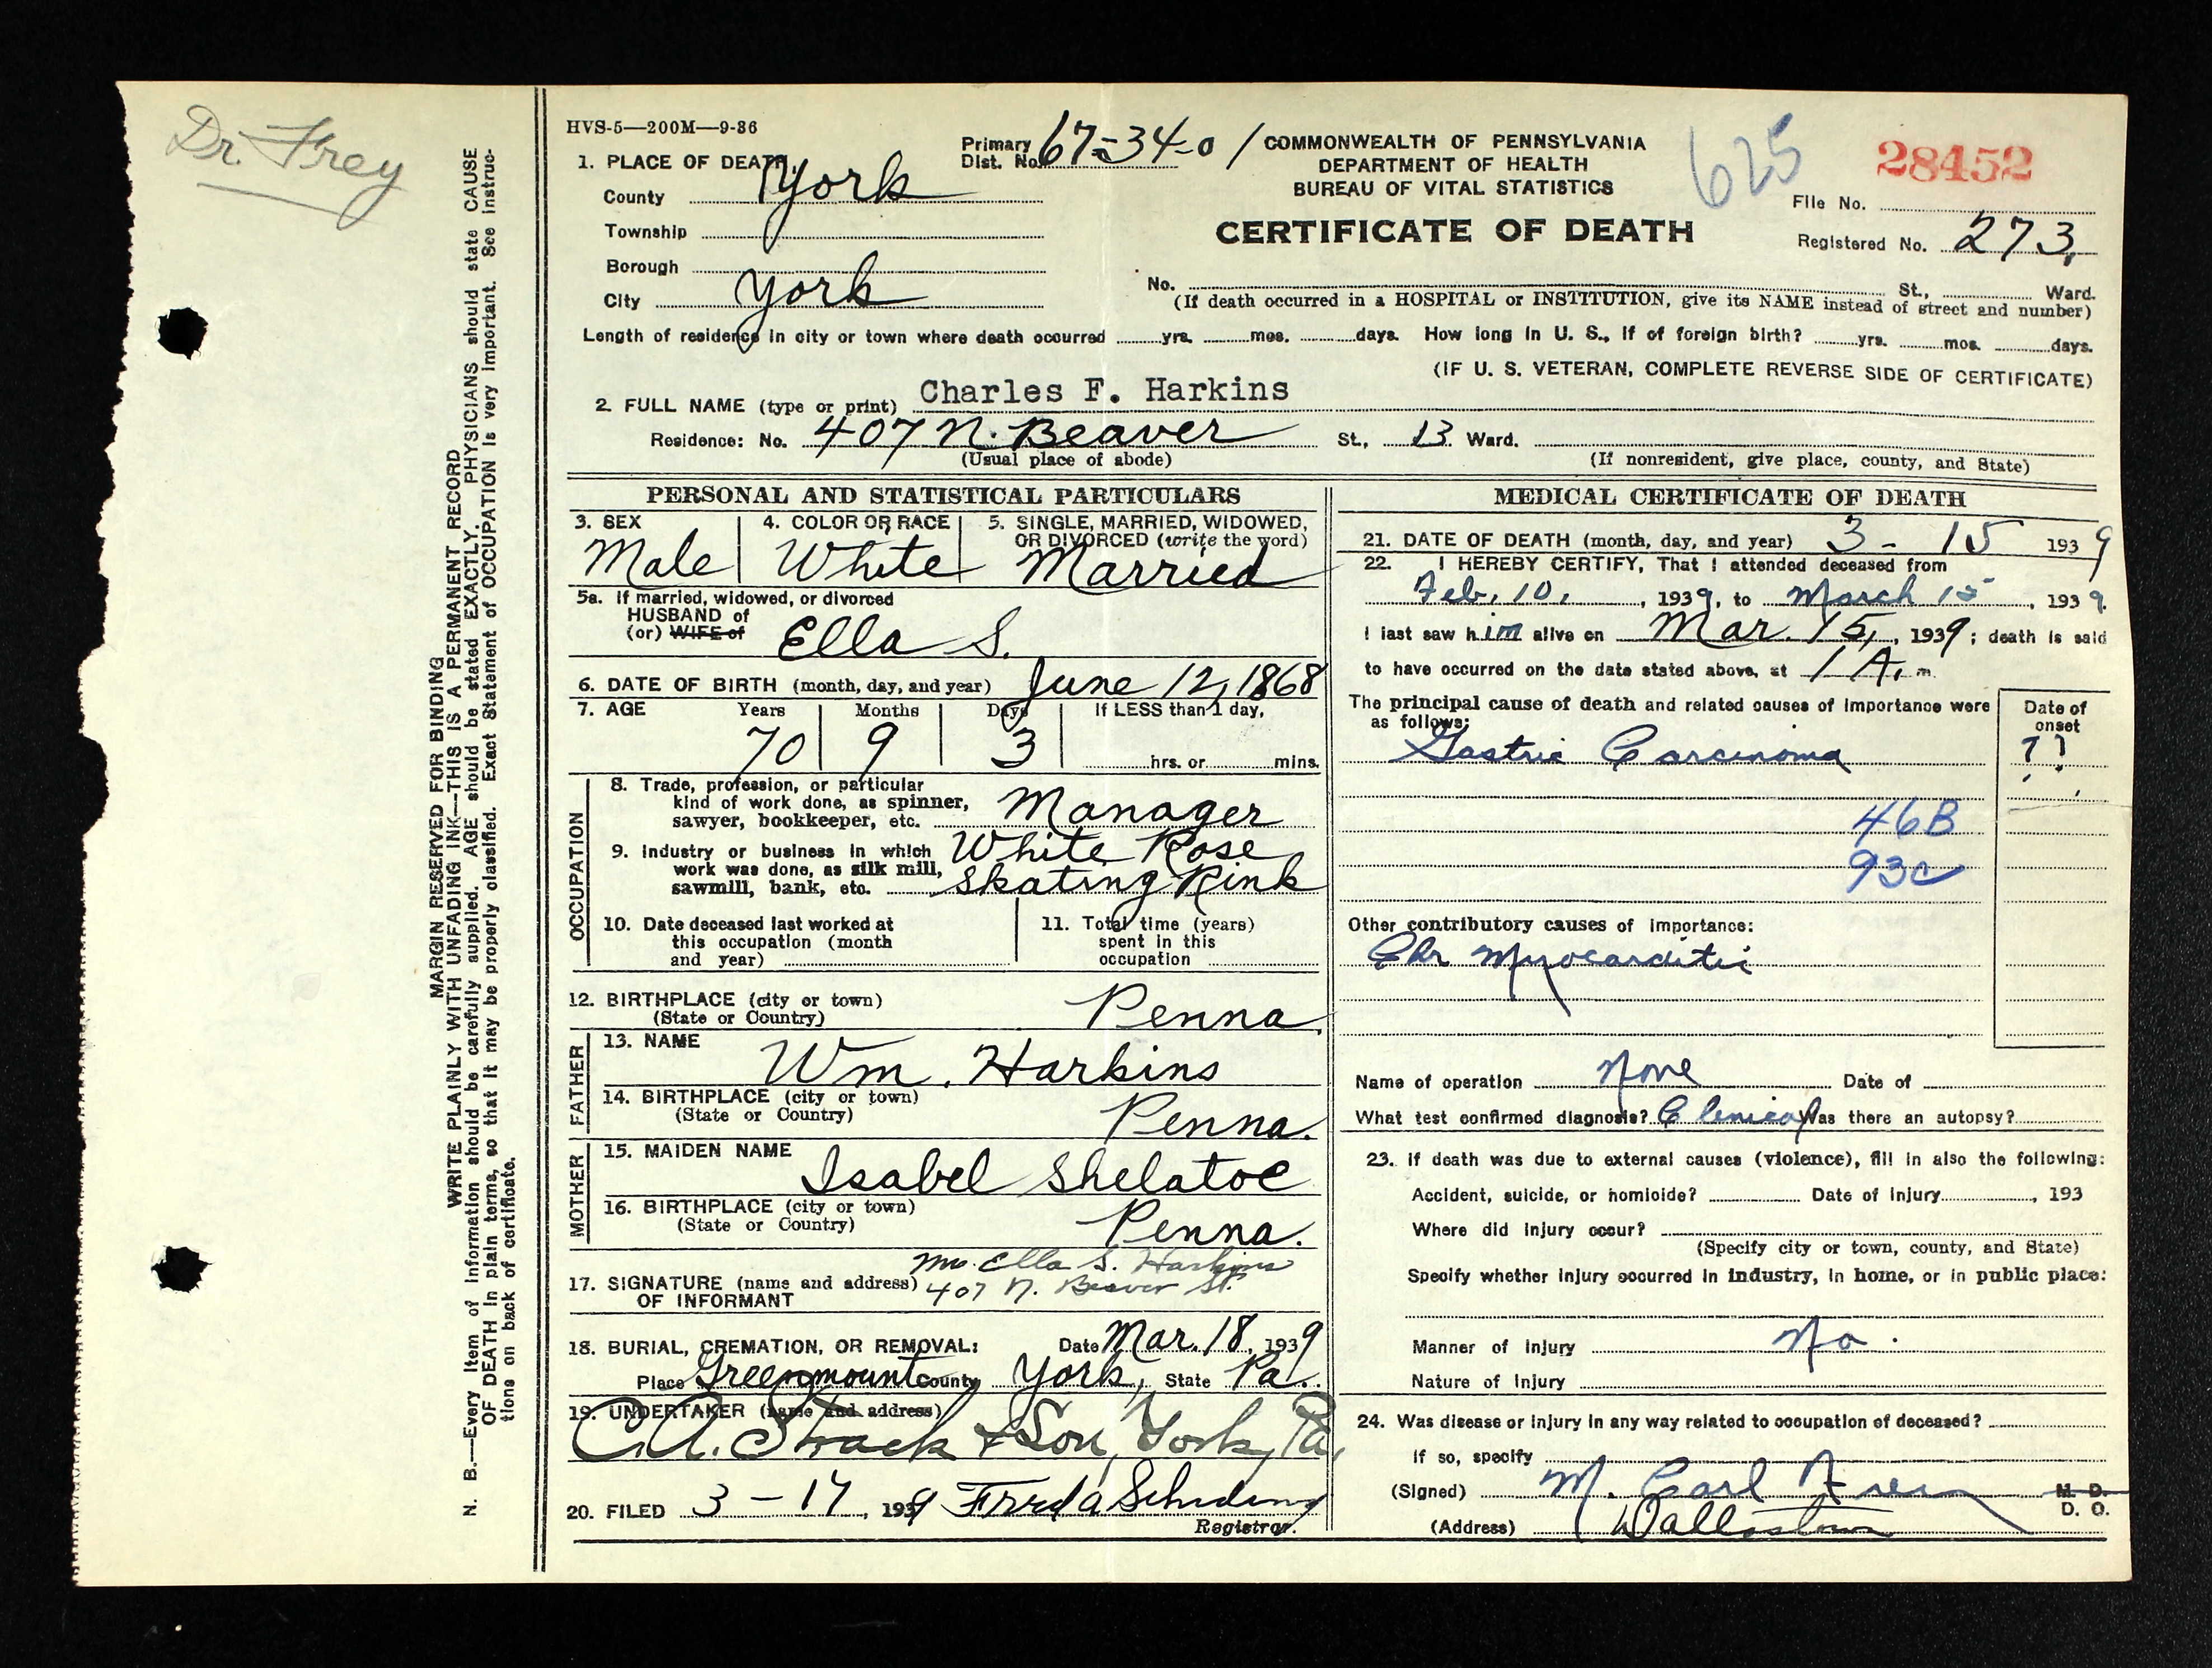 Dr. Frey
MARGIN RESERVED FOR BINDING
WRITE PLAINLY WITH UNFADING INK—THIS IS A PERMANENT RECORD
N. B.—Every item of information should be carefully supplied. AGE should be stated EXACTLY. PHYSICIANS should state CAUSE
OF DEATH in plain terms, so that it may be properly classified. Exact Statement of OCCUPATION is very important. See instruc-
tions on back of certificate.
HVS-5—200M—9-36
Primary Dist. No. 67-34-01
COMMONWEALTH OF PENNSYLVANIA
DEPARTMENT OF HEALTH
BUREAU OF VITAL STATISTICS
CERTIFICATE OF DEATH
625
28452
File No.
Registered No. 273,
1. PLACE OF DEATH
County York
Township
Borough
City York
No. St., Ward.
(If death occurred in a HOSPITAL or INSTITUTION, give its NAME instead of street and number)
Length of residence in city or town where death occurred yrs. mos. days. How long in U. S., if of foreign birth? yrs. mos. days.
(IF U. S. VETERAN, COMPLETE REVERSE SIDE OF CERTIFICATE)
2. FULL NAME (type or print) Charles F. Harkins
Residence: No. 407 N. Beaver St., 13 Ward.
(Usual place of abode)
(If nonresident, give place, county, and State)
PERSONAL AND STATISTICAL PARTICULARS
3. SEX
Male
4. COLOR OR RACE
White
5. SINGLE, MARRIED, WIDOWED,
OR DIVORCED (write the word)
Married
5a. If married, widowed, or divorced
HUSBAND of
(or) WIFE of Ella S.
6. DATE OF BIRTH (month, day, and year) June 12, 1868
7. AGE Years Months Days If LESS than 1 day,
70 9 3 hrs. or mins.
OCCUPATION
8. Trade, profession, or particular
kind of work done, as spinner,
sawyer, bookkeeper, etc. Manager
9. Industry or business in which
work was done, as silk mill,
sawmill, bank, etc.
White Rose
Skating Rink
10. Date deceased last worked at
this occupation (month
and year)
11. Total time (years)
spent in this
occupation
12. BIRTHPLACE (city or town)
(State or Country) Penna.
FATHER
13. NAME Wm. Harkins
14. BIRTHPLACE (city or town)
(State or Country) Penna.
MOTHER
15. MAIDEN NAME Isabel Shelatoe
16. BIRTHPLACE (city or town)
(State or Country) Penna.
Mrs. Ella S. Harkins
17. SIGNATURE (name and address) 407 N. Beaver St.
OF INFORMANT
18. BURIAL, CREMATION, OR REMOVAL: Date Mar. 18, 1939
Place Greenmount County York, State Pa.
19. UNDERTAKER (name and address)
C.A. Strack & Son, York, Pa.
20. FILED 3-17, 1939
Registrar.
MEDICAL CERTIFICATE OF DEATH
21. DATE OF DEATH (month, day, and year) 3-15 1939
22. I HEREBY CERTIFY, That I attended deceased from
Feb. 10, , 1939, to March 15, 1939.
I last saw him alive on Mar. 15, , 1939; death is said
to have occurred on the date stated above, at 1 A. m.
The principal cause of death and related causes of importance were
as follows:
Date of
onset
Gastric Carcinoma ??
46B
93c
Other contributory causes of importance:
Chr Myocarditis
Name of operation None Date of
What test confirmed diagnosis? Clinical Was there an autopsy?
23. If death was due to external causes (violence), fill in also the following:
Accident, suicide, or homicide? Date of injury , 193
Where did injury occur?
(Specify city or town, county, and State)
Specify whether injury occurred in industry, in home, or in public place:
Manner of injury No.
Nature of injury
24. Was disease or injury in any way related to occupation of deceased?
If so, specify
(Signed) M. Carl Frey M. D.
D. O.
(Address) Dallastown